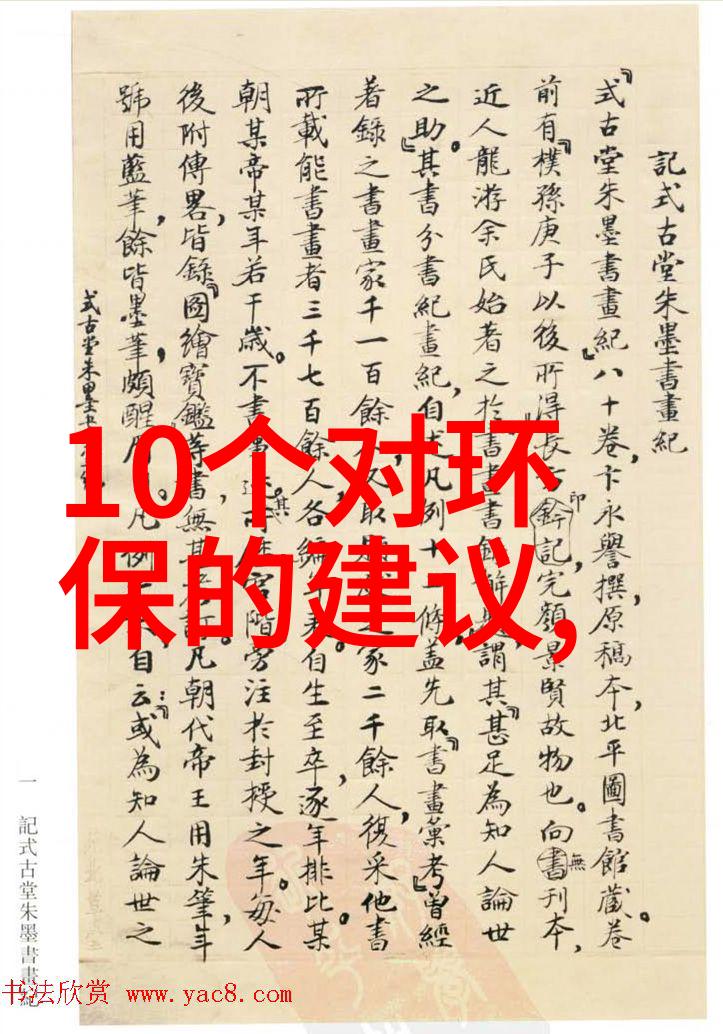 記式古堂朱墨書畫紀
『式古堂朱墨書畫紀』八十卷,卞永譽撰,原稿本,北平圖書館藏。卷
前有『樸孫庚子以後所得』長方印鈐記,完顏景賢故物也。向無刊本,
近人龍游余氏始著之於書畫書錄解題,謂其『甚足為知人論世
之助。』其書分書紀畫紀,自述凡例十一條,蓋先取『書畫彙考』曾經
著錄之書畫家千一百餘人,又取
家二千餘人,復采他書
所載能書畫者三千七百餘人,各編年表。自生至卒,逐年排比,某
朝某帝某年若干歲。不書事
其所
官階旁注於封授之年。每人
後附傳畧,皆錄『圖繪寶鑑』等書,無甚
凡朝代帝王用朱筆,年
號用藍筆,餘皆墨筆,頗醒
凡例
自云:『或為知人論世之
式古堂朱墨書
紀
一
記式古堂朱墨書畫紀
10个对环
保的建议,
书法欣赏 www.yac8.com